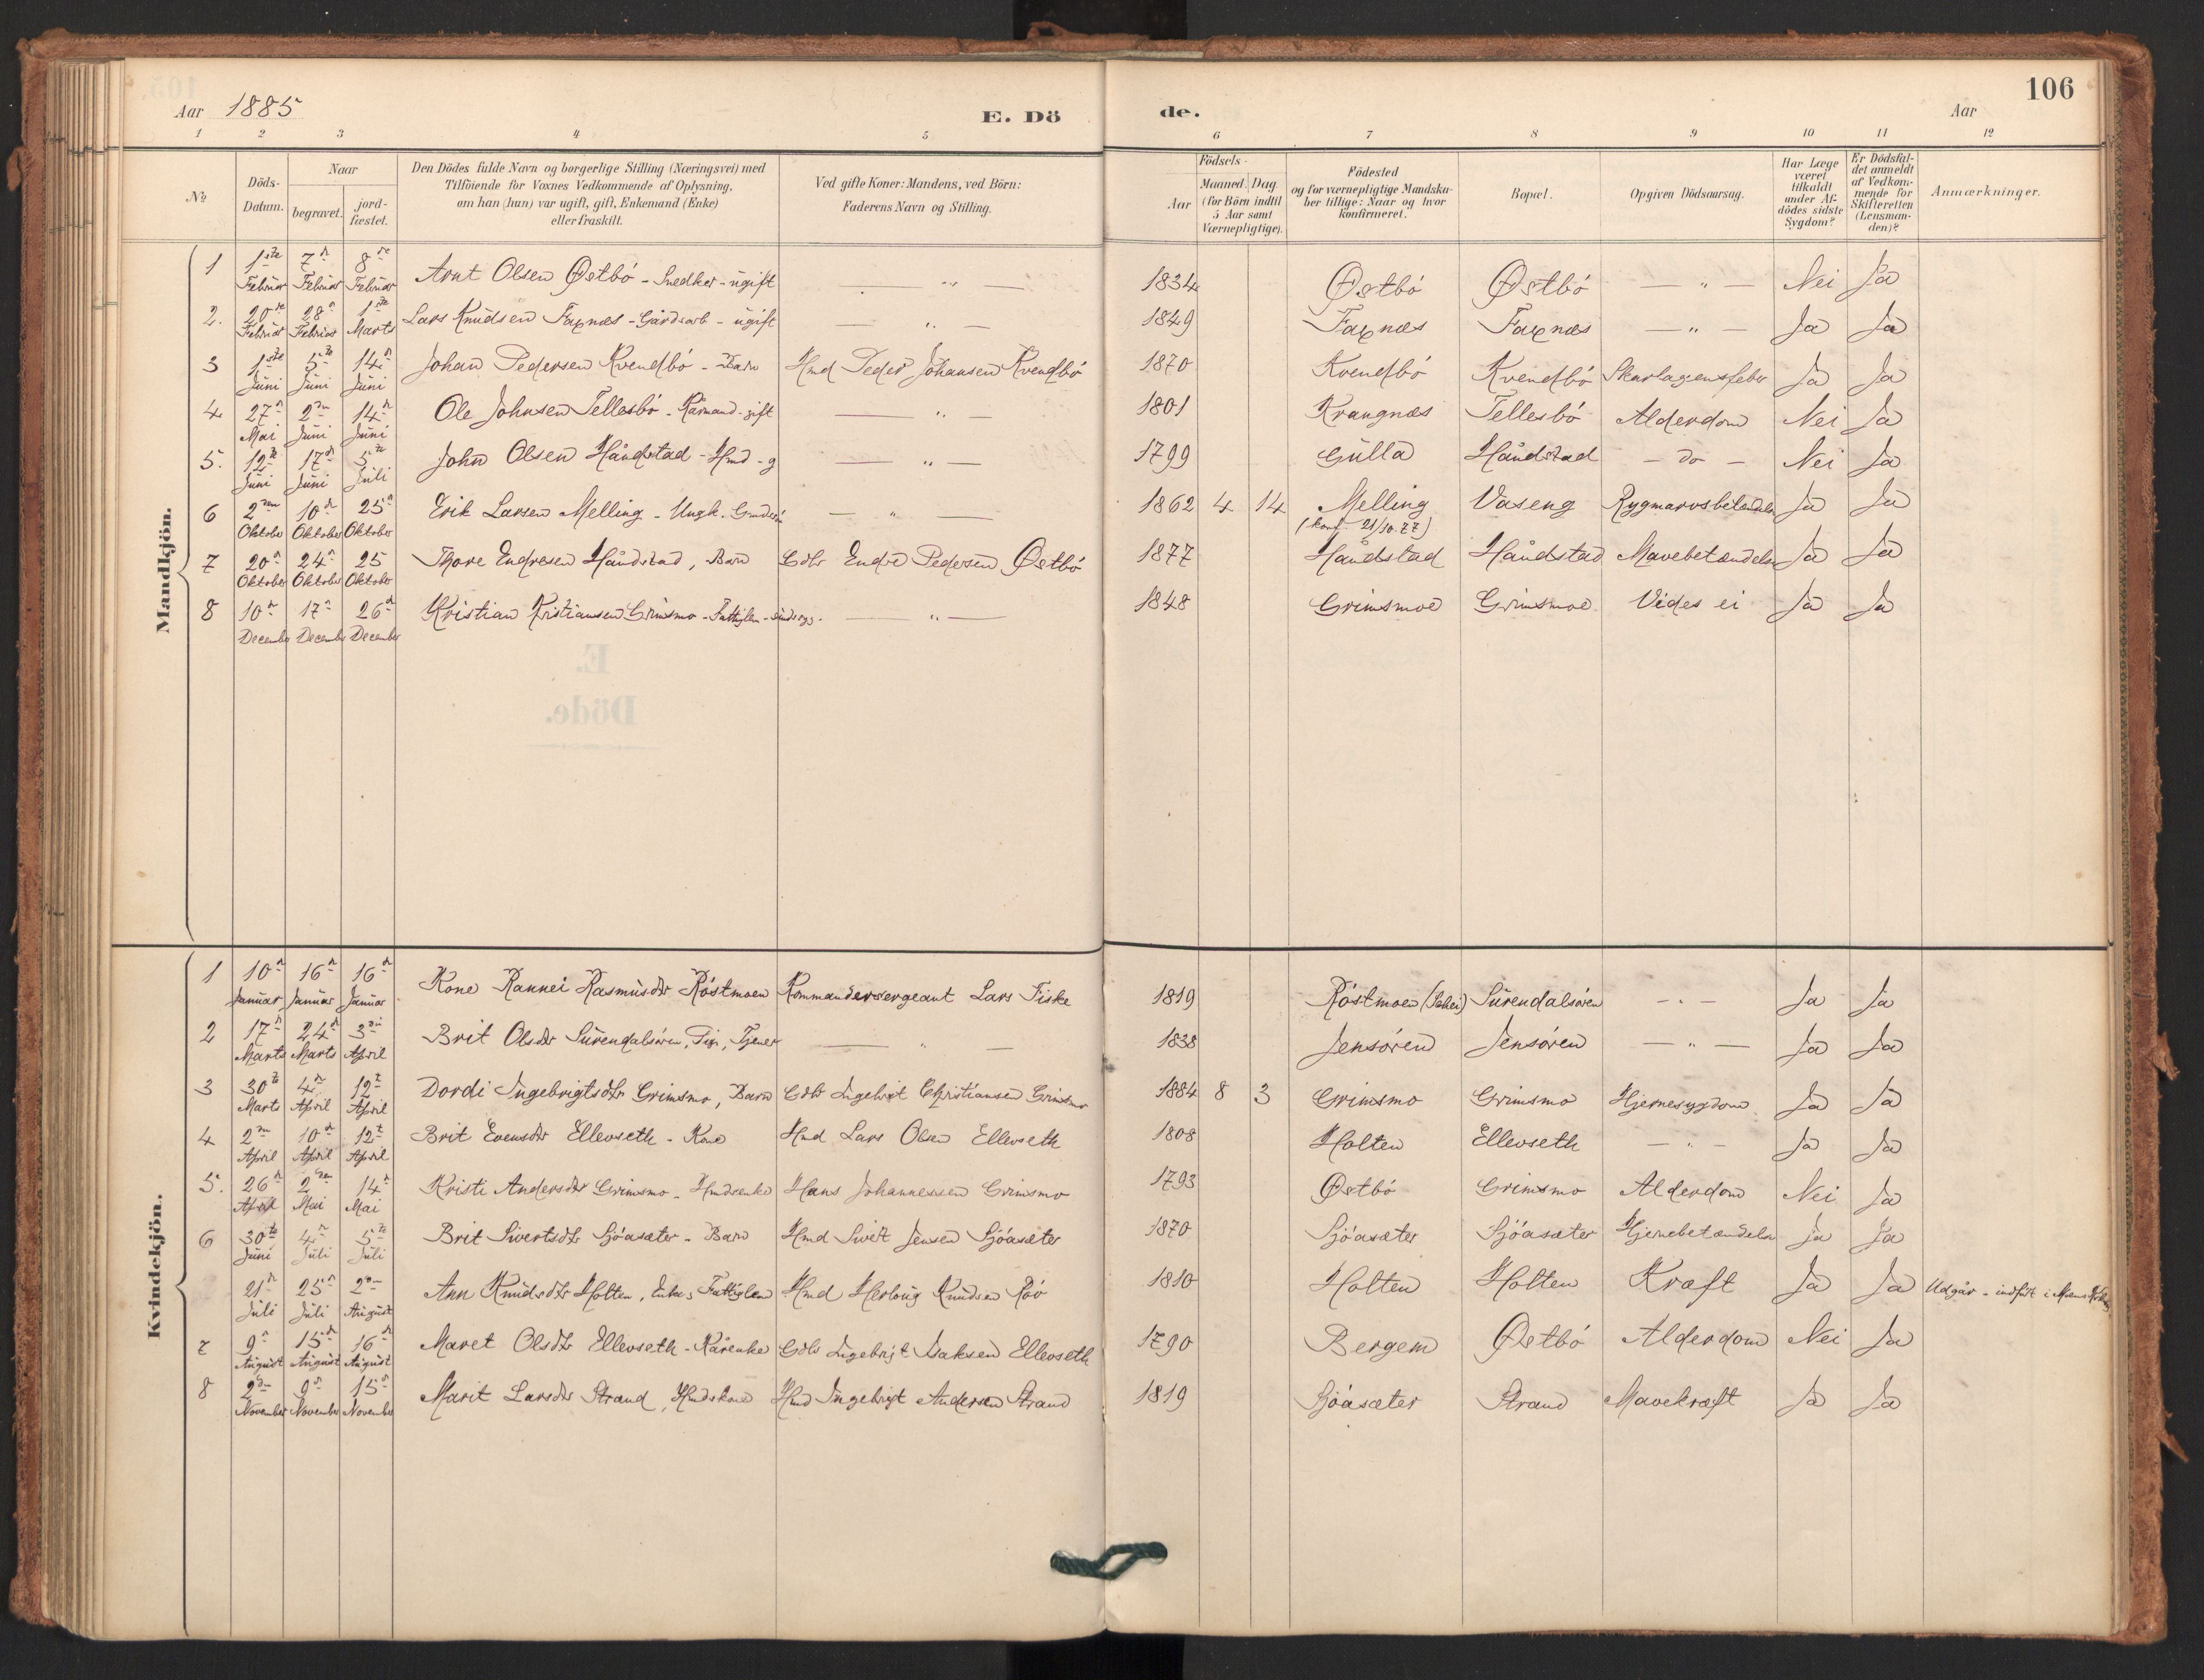 106
Aar 1885 E. Dö de. Aar
1 2 3 4 5 6 7 8 9 10 11 12
No
Döds-Datum.
Naar
begravet.
jord-fæstet.
Den Dödes fulde Navn og borgerlige Stilling (Næringsvei) med
Tilföiende for Voxnes Vedkommende af Oplysning,
om han (hun) var ugift, gift, Enkemand (Enke)
eller fraskilt.
Ved gifte Koner: Mandens, ved Börn:
Faderens Navn og Stilling.
Födsels-
Aar
Maaned. Dag
(for Börn indtil
5 Aar samt
Værnepligtige).
Födested
og for værnepligtige Mandska-
ber tillige: Naar og hvor
konfirmeret.
Bopæl.
Opgiven Dödsaarsag.
Har Læge
været
tilkaldt
under Af-
dödes sidste
Sygdom?
Er Dödsfal-
det anmeldt
af Vedkom-
mende for
Skifteretten
(Lensman-
den)?
Anmærkninger.
Mandkjön.
1 1ste Februar 7d Februar 8de Februar Arnt Olsen Østbö - Snedker - ugift — " — 1834 Østbö Østbö — " — Nei Ja
2. 20de Februar 28d Februar 1ste Marts Lars Knudsen Faxnæs - Gårdsarb - ugift — " — 1849 Faxnæs Faxnæs — " — Ja Ja
3 1ste Juni 5te Juni 14d Juni Johan Pedersen Kvendbö - Barn Hmd Peder Johansen Kvendbö 1870 Kvendbö Kvendbö Skarlagensfeber Ja Ja
4 27d Mai 2den Juni 14d Juni Ole Johnsen Tellesbö - Kårmand - gift — " — 1801 Krangnæs Tellesbö Alderdom Nei Ja
5. 12te Juni 17d Juni 5te Juli John Olsen Håndstad - Hmd - g — " — 1799 Gulla Håndstad — do — Nei Ja
6 2den Oktober 10d Oktober 25d Oktober Erik Larsen Melling - Ungk. — " — 1862 4 14 Melling Vaseng Rygmarvsbetændelse Ja Ja
(konf. 21/10.77)
7 20d Oktober 24d Oktober 25 Oktober Thore Endresen Håndstad, Barn Gdbr Endre Pedersen Østbö 1877 Håndstad Håndstad Mavebetændelse Ja Ja
8 10d December 17d December 26d December Kristian Kristiansen Grimsmo - Fattiglem - sindssyg. — " — 1848 Grimsmoe Grimsmoe Vides ei Ja Ja
E.
Döde.
Kvindekjön.
1 10d Januar 16d Januar 16d Januar Kone Rannei Rasmusdtr Röstmoen Kommandersergeant Lars Fiske 1819 Röstmoen Surendalsören — " — Ja Ja
2 17d Marts 24d Marts 3die April Brit Olsdtr Surendalsören, Pige, Tjener — " — 1838 Jensören Jensören — " — Ja Ja
3 30te Marts 4d April 12t April Dordi Ingebrigtsdtr Grimsmo, Barn Gdbr Ingebrigt Christiansen Grimsmo 1884 8 3 Grimsmo Grimsmo Hjernesygdom Ja Ja
4 2den April 10d April 12t April Brit Evensdtr Ellevseth - Kone Hmd Lars Olsen Ellevseth 1808 Holten Ellevseth — " — Ja Ja
5. 26d April 2den Mai 14d Mai Kristi Andersdtr Grimsmo - Hmdsenke Hans Johannessen Grimsmo 1793 Østbö Grimsmo Alderdom Nei Ja
6 30te Juni 4d Juli 5te Juli Brit Sivertsdtr Sjöasæter - Barn Hmd Sivert Jensen Sjöasæter 1870 Sjöasæter Sjöasæter Hjernebetændelse Ja Ja
21d Juli 25d Juli 2den August Ann Knudsdtr Holten, Enke, Fattiglem Hmd Herloug Knudsen Röv 1810 Holten Holten Kræft Ja Ja Udgår - indfört i
7 9d August 15d August 16d August Maret Olsdtr Ellevseth - Kårenke Gdbr Ingebrigt Isaksen Ellevseth 1790 Bergem Østbö Alderdom Nei Ja
8 2den November 9d November 15d November Marit Larsdtr Strand, Hmdskone Hmd Ingebrigt Andersen Strand 1819 Sjöasæter Strand Mavekræft Ja Ja